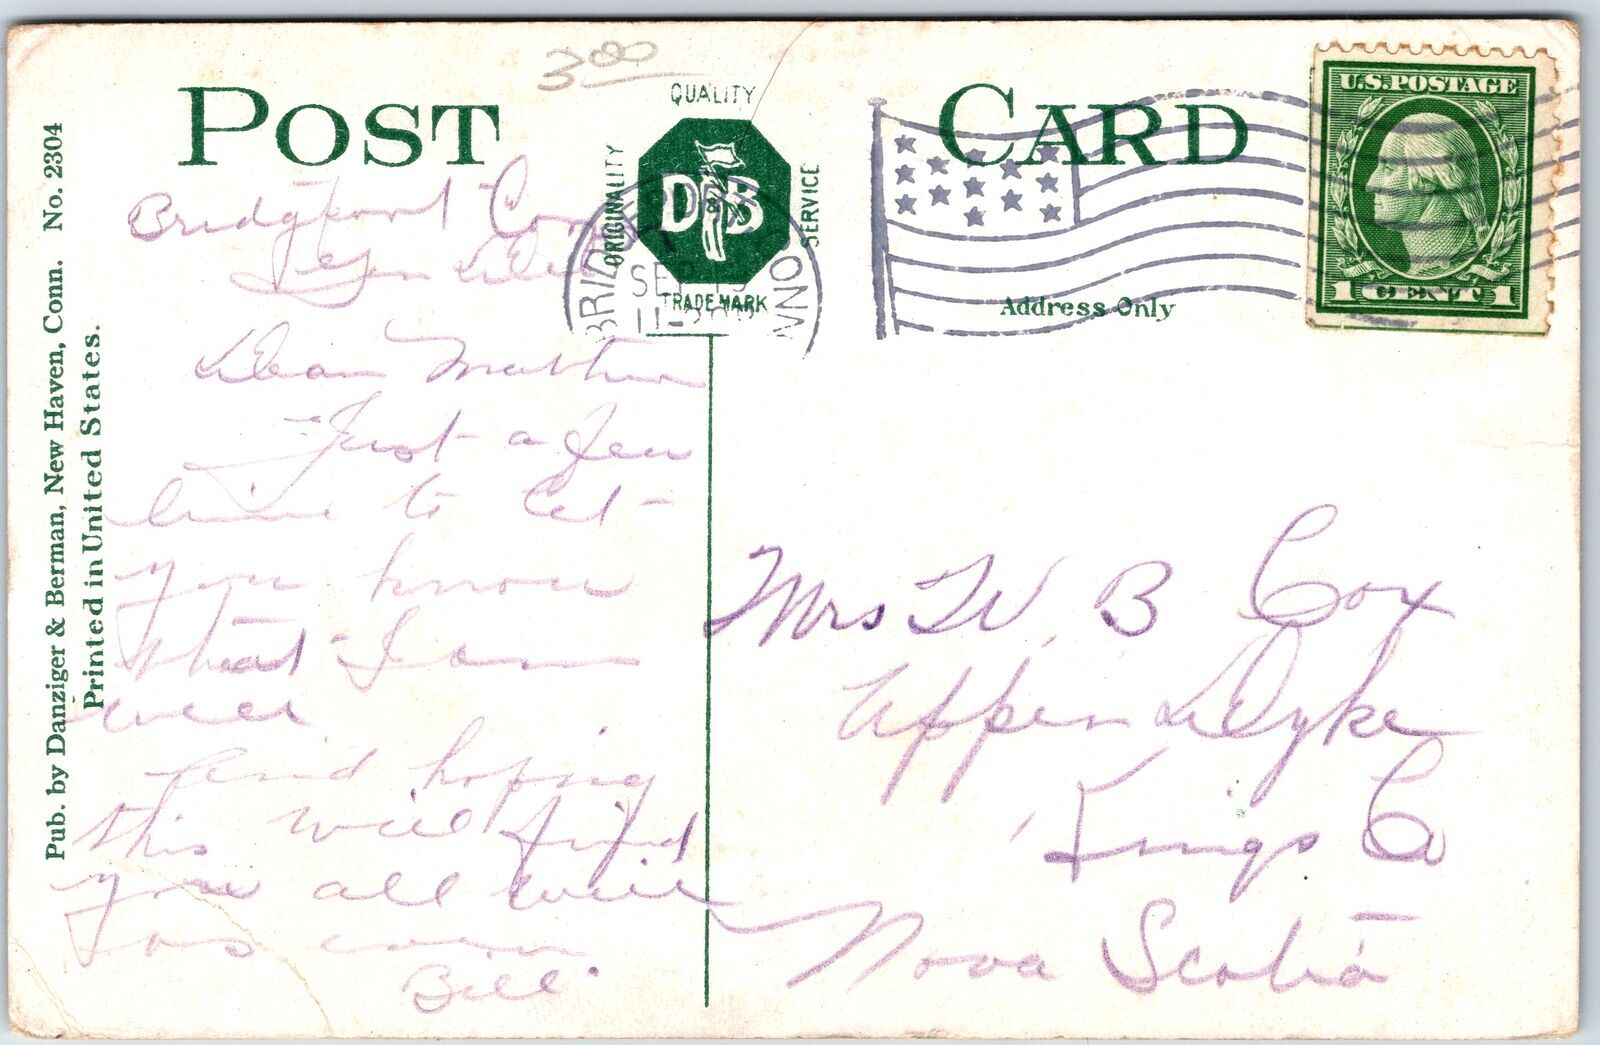 3 00
POST CARD
QUALITY
ORIGINALITY
SERVICE
D & B
TRADE MARK
Address Only
U.S. POSTAGE
1 CENT 1
BRIDGEPORT
CONN
SEP 15
Pub. by Danziger & Berman, New Haven, Conn. No. 2304
Printed in United States.
Bridgeport Conn
Dear Mother
Just a few
line to let
you know
that I am
well
And hoping
this will find
you all well
as ever
Bill
Mrs W. B Cox
Upper Dyke
Kings Co
Nova Scotia